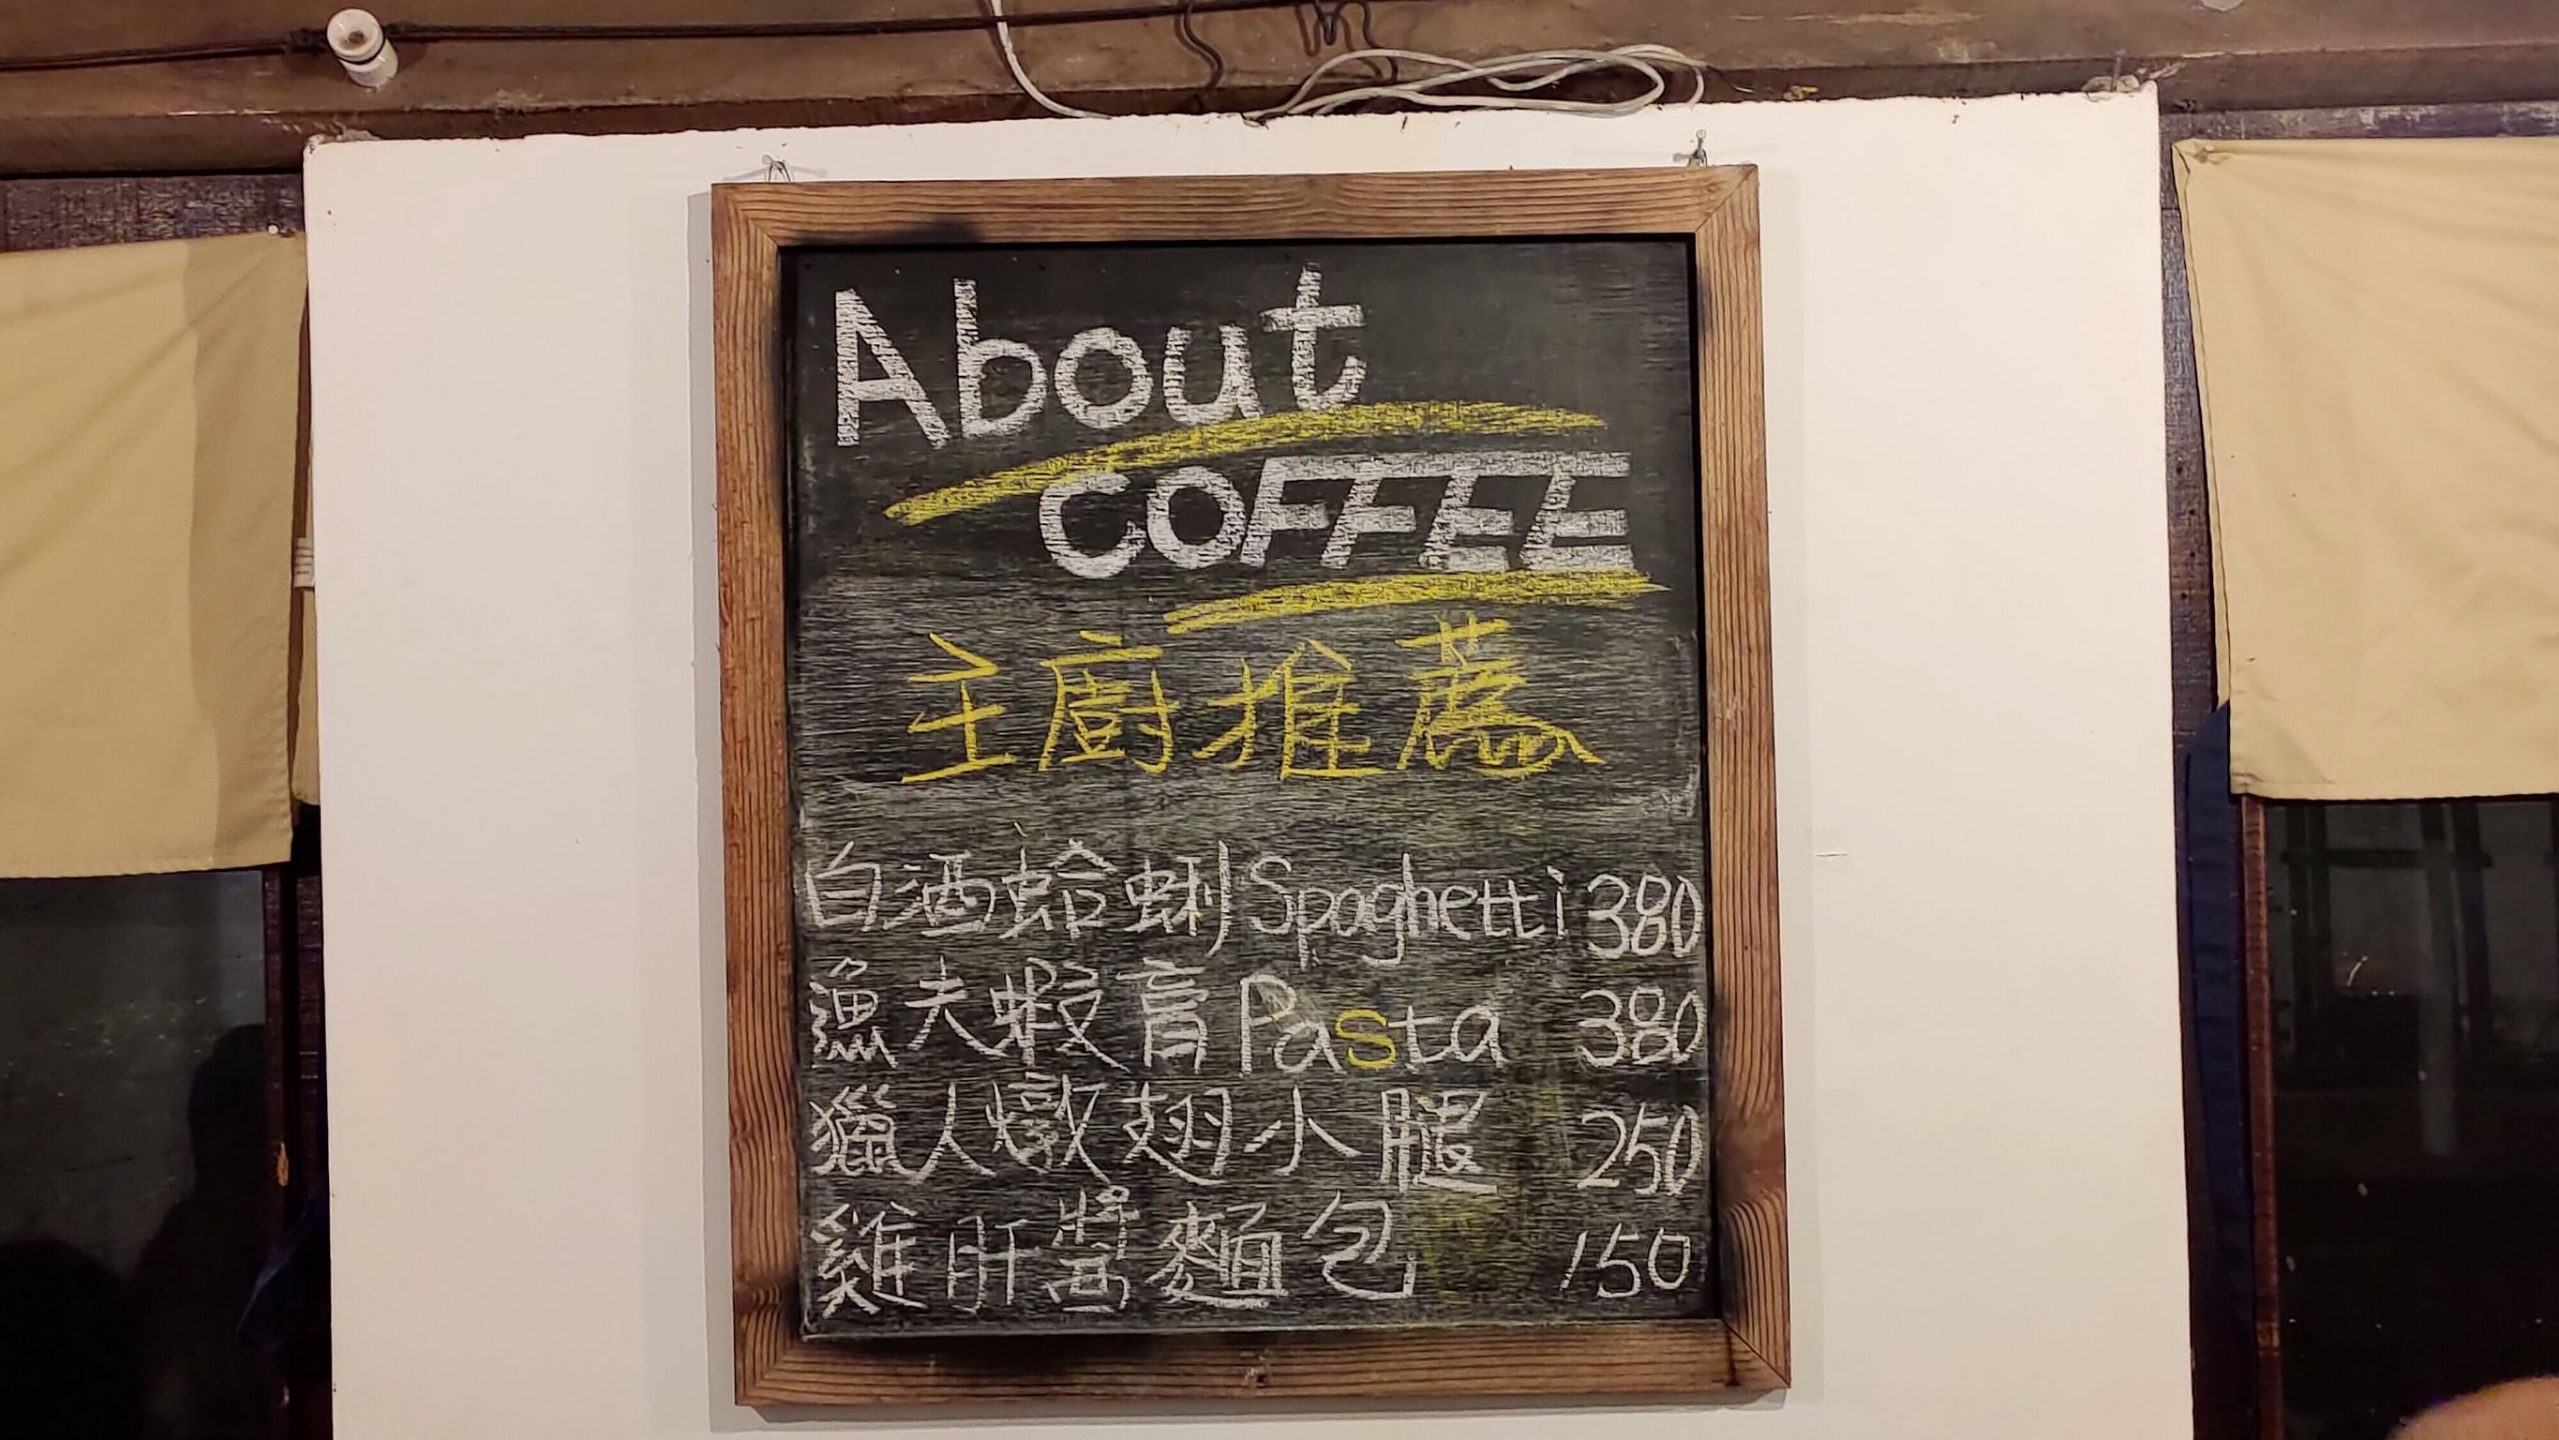 About
COFFEE
主廚推薦
白酒蛤蜊Spaghetti 380
漁夫蝦膏Pasta 380
獵人燉翅小腿 250
雞肝醬麵包 150